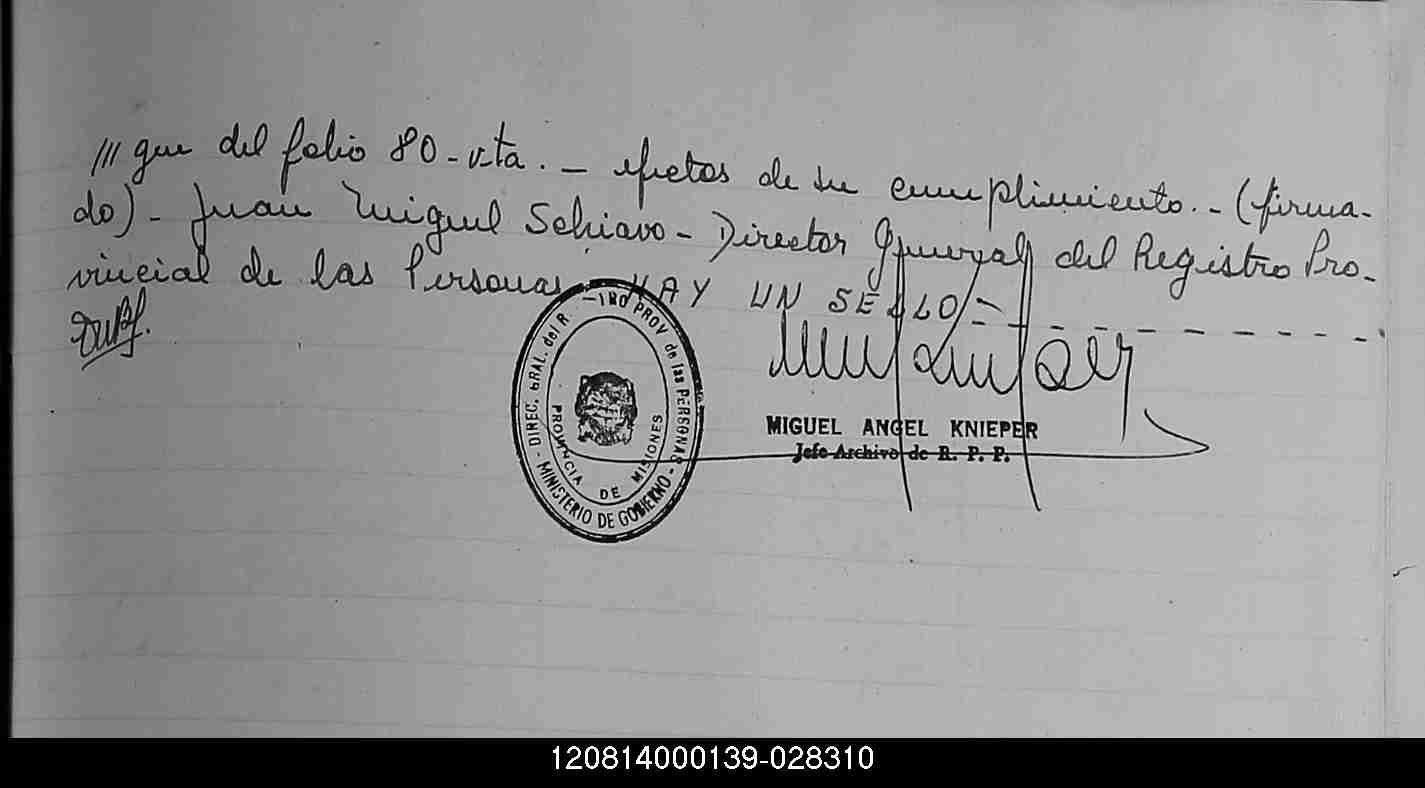 /// gue del folio 80 - vta. - efectos de su cumplimiento. - (firma-
do) - Juan Miguel Schiavo - Director General del Registro Pro-
vincial de las Personas. HAY UN SELLO -
- DIREC. GRAL. del R. - TRO PROV de las PERSONAS -
MINISTERIO DE GOBIERNO
PROVINCIA DE MISIONES
MIGUEL ANGEL KNIEPER
Jefe Archivo de R. P. P.
120814000139-028310